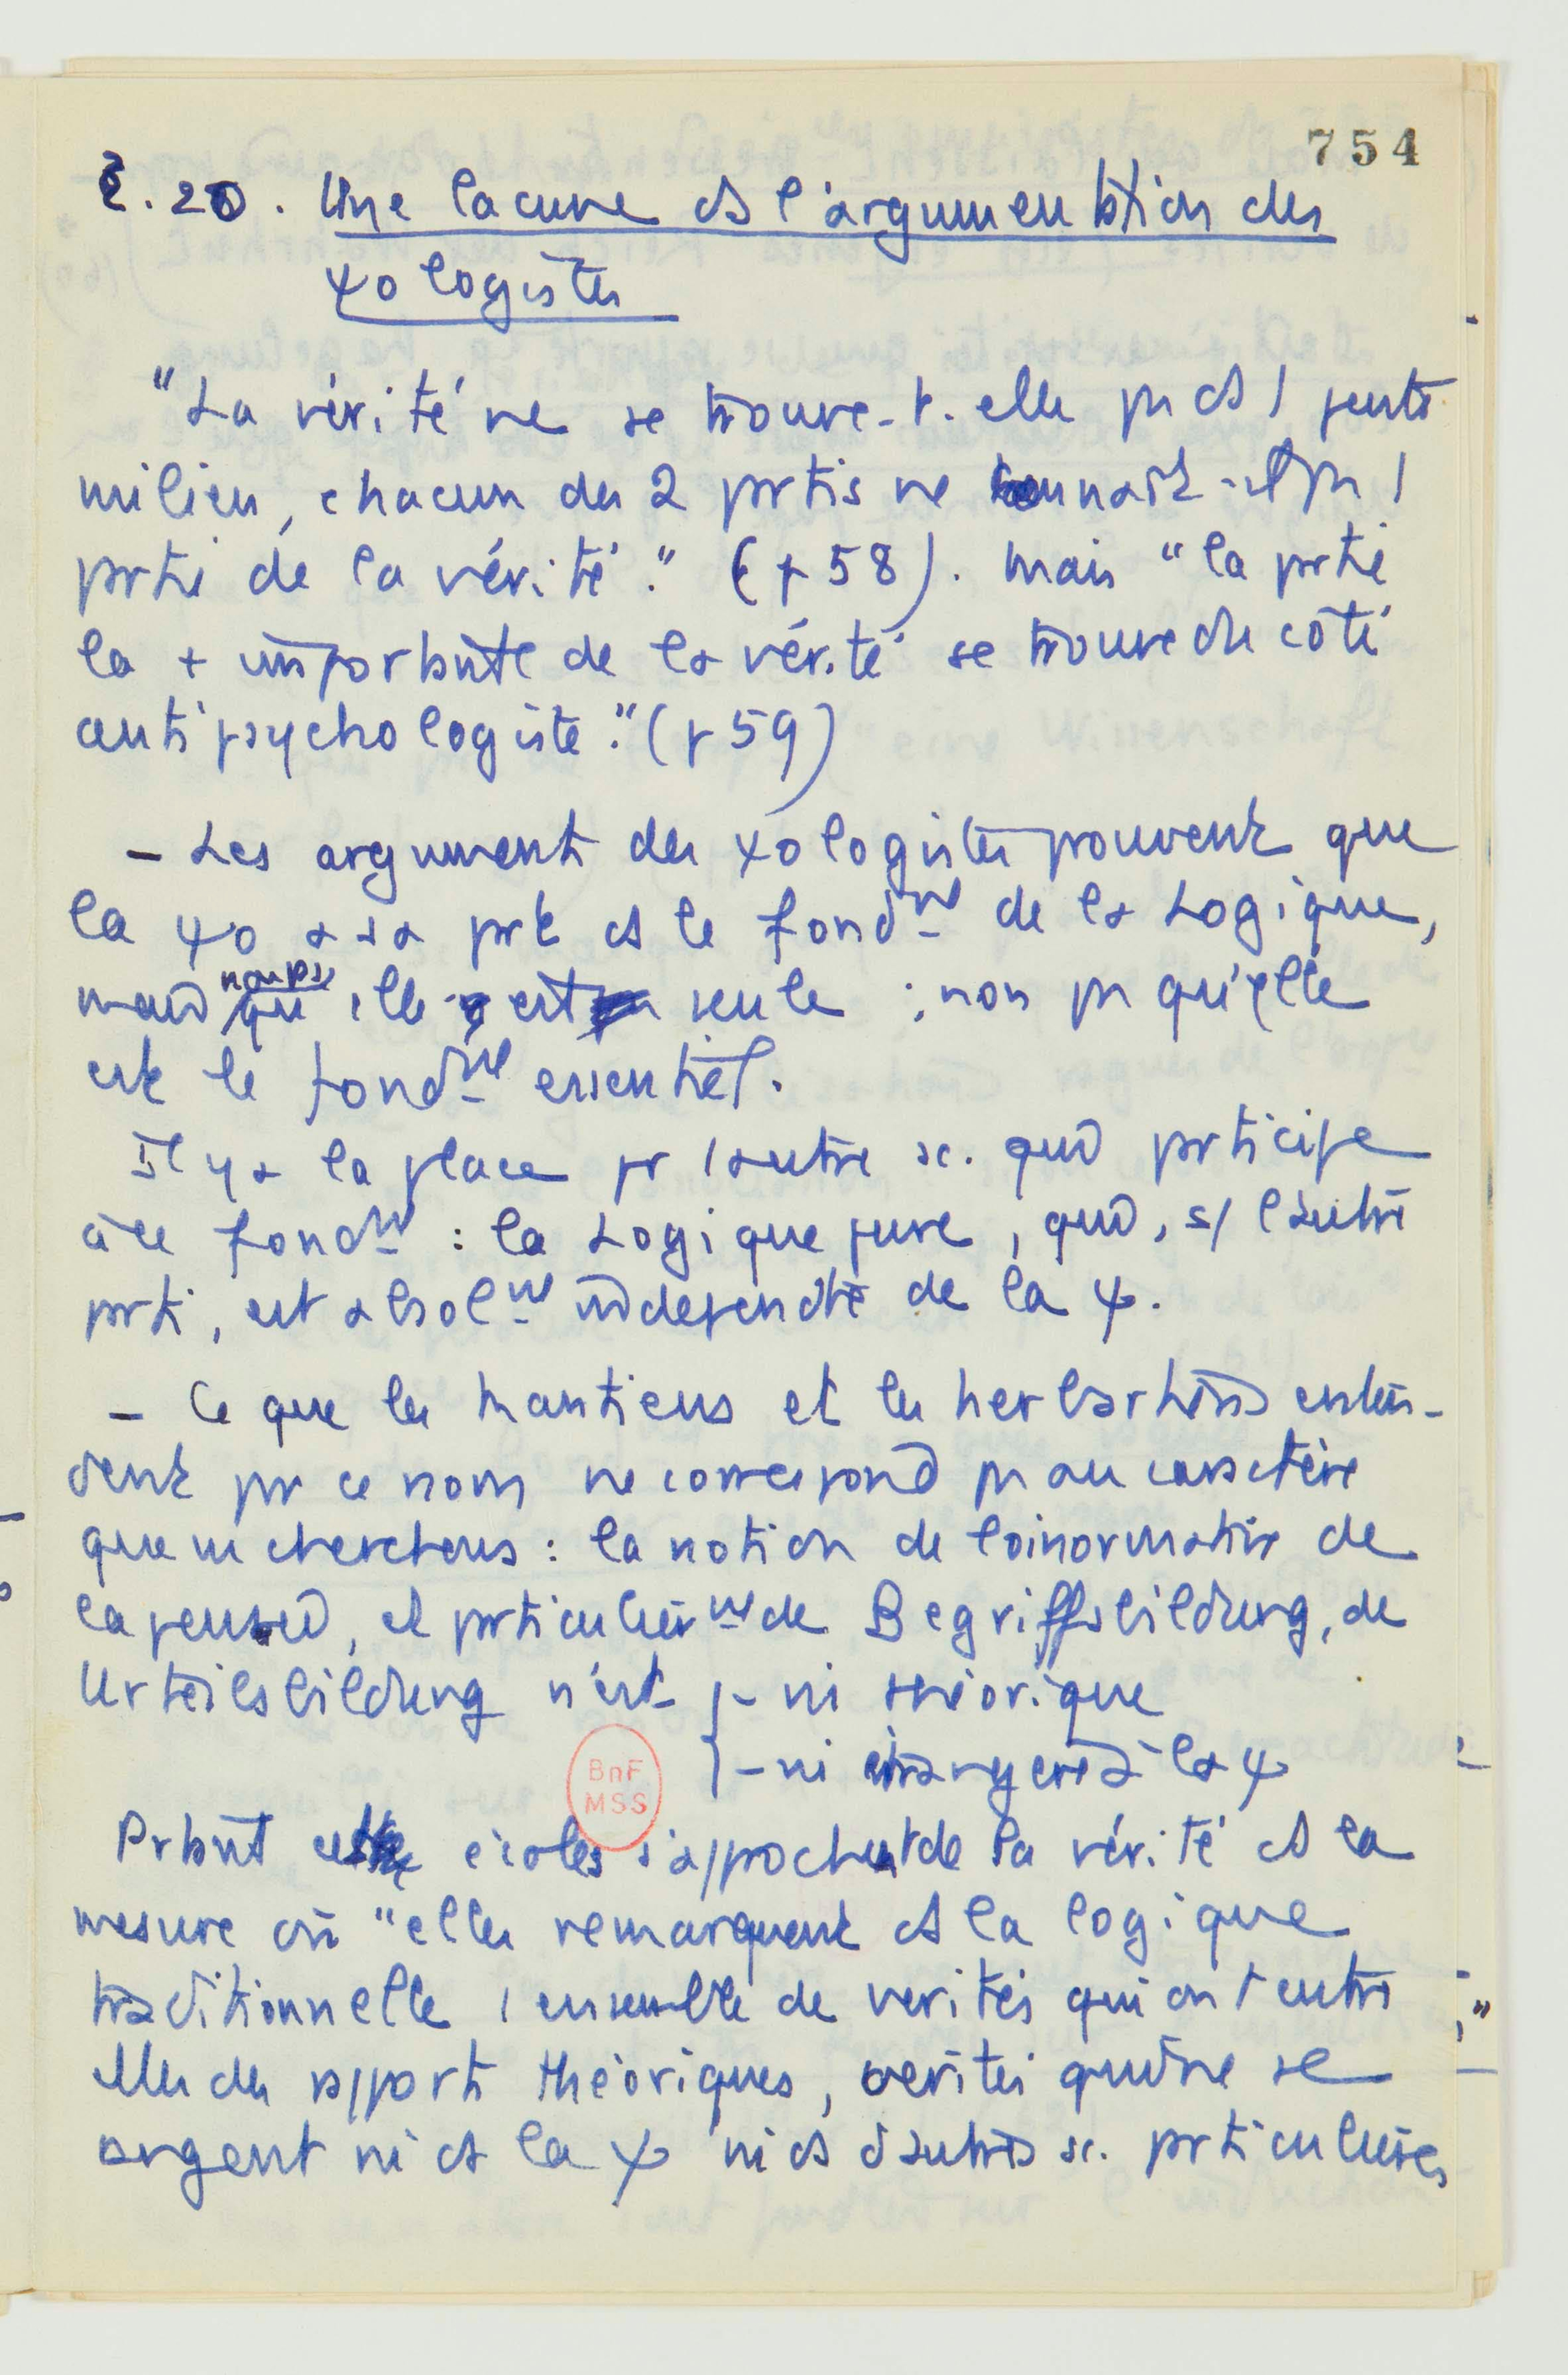 754
§. 20. Une lacune ds l'argumentation des
ψologistes
"La vérité ne se trouve-t-elle pas ds 1 juste
milieu, chacun des 2 partis ne connaît-il pas 1
partie de la vérité." (p 58). Mais "la partie
la + importante de la vérité se trouve du côté
antipsychologiste." (p 59)
- Les arguments des ψologistes prouvent que
la ψo a sa part ds le fondmt de la Logique,
mais non pas qu'elle est seule ; non pas qu'elle
est le fondmt essentiel.
Il y a la place pr 1 autre sc. qui participe
à ce fondmt : la Logique pure, qui, d'autre
part, est absolmt indépendte de la ψ.
- Ce que les kantiens et les herbartiens enten-
dent par ce nom ne correspond pas au caractère
que ns cherchons : la notion de loi normative de
la pensée, et particulièrmt de Begriffsbildung, de
Urteilsbildung n'est - ni théorique
- ni étrangère à la ψ
Partant ces écoles s'approchent de la vérité ds la
mesure où "elles remarquent ds la logique
traditionnelle 1 ensemble de vérités qui ont entre
elles des rapports théoriques, vérités qui ne se
rangent ni ds la ψ ni ds d'autres sc. particulières
BnF
MSS